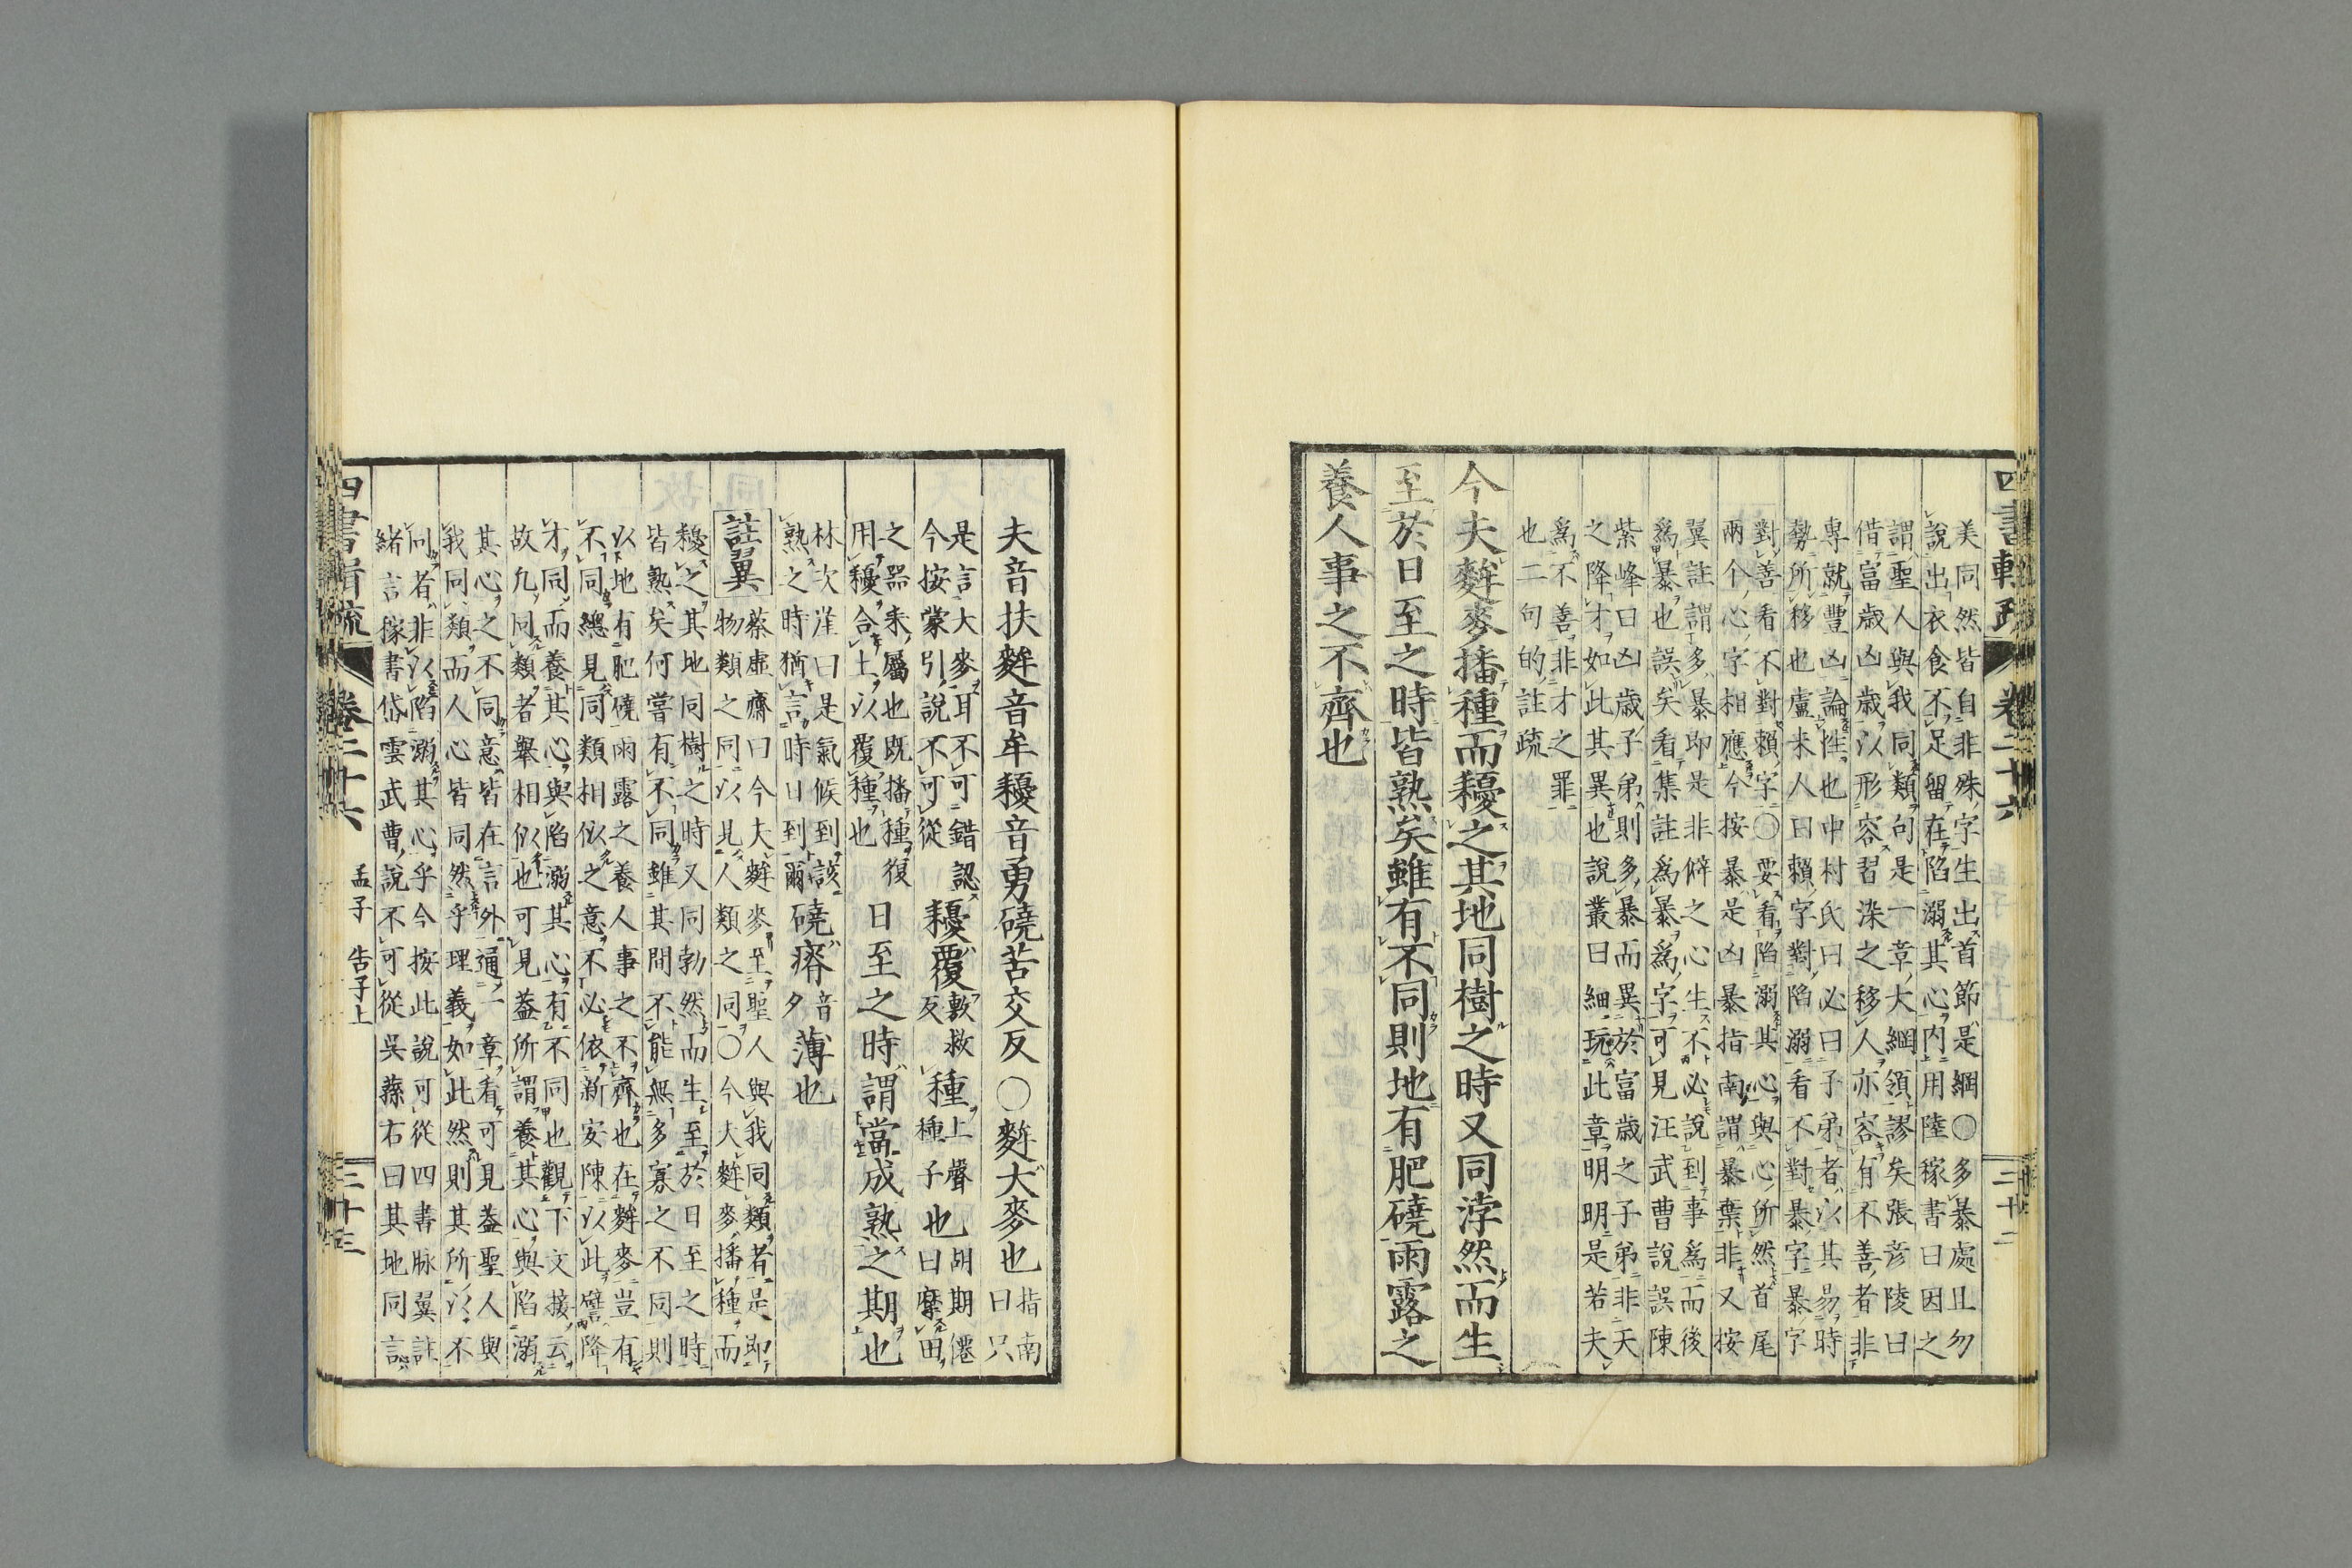 四書輯疏 卷二十六 三十二
美同然皆自非殊字生出首節是綱〇多暴處且勿
說出衣食不足留在陷溺其心内用陸稼書曰因之
謂聖人與我同類句是一章大綱領謬矣張彦陵曰
借富歳凶歳以形容習染之移人亦容有不善者非
專就豐凶論性也中村氏曰必曰子弟者以其易時
勢所移也盧未人曰賴字對陷溺看不對暴字暴字
對善看不對賴字〇要看陷溺其心與心所然首尾
兩个心字相應今按暴是凶暴指南謂暴棄非又按
翼註謂多暴即是非僻之心生不必說到事爲而後
爲暴也誤矣看集註爲暴爲字可見汪武曹說誤陳
紫峰曰凶歳子弟則多暴而異於富歳之子弟非天
之降才如此其異也說叢曰細玩此章明明是若夫
爲不善非才之罪
也二句的註疏
今夫麰麥播種而耰之其地同樹之時又同浡然而生
至於日至之時皆熟矣雖有不同則地有肥磽雨露之
養人事之不齊也
夫音扶麰音牟耰音勇磽苦交反〇麰大麥也指南曰只
是言大麥耳不可錯認
今按蒙引說不可從
耰覆敷救反種上聲種子也胡期僊曰摩田
之器耒屬也既播種復
用耰合土以覆種也
日至之時謂當成熟之期也
林次厓曰是氣候到該
熟之時猶言時日到爾
磽瘠音夕薄也
註翼
蔡虛齋曰今大麰麥至聖人與我同類者是即
物類之同以見人類之同〇今大麰麥播種而
耰之其地同樹之時又同勃然而生至於日至之時
皆熟矣何嘗有不同雖其間不能無多寡之不同則
以地有肥磽雨露之養人事之不齊也在麰麥豈有
不同總見同類相似之意不必依新安陳以此譬降
才同而養其心與陷溺其心有不同也觀下文接云
故凡同類者舉相似也可見蓋所謂養其心與陷溺
其心之不同意皆在言外通一章看可見蓋聖人與
我同類而人心皆同然乎理義如此然則其所以不
同者非以陷溺其心乎今按此說可從四書脉翼註
緒言稼書岱雲武曹說不可從吳蓀右曰其地同言
四書輯疏 卷二十六 孟子 告子上 三十三